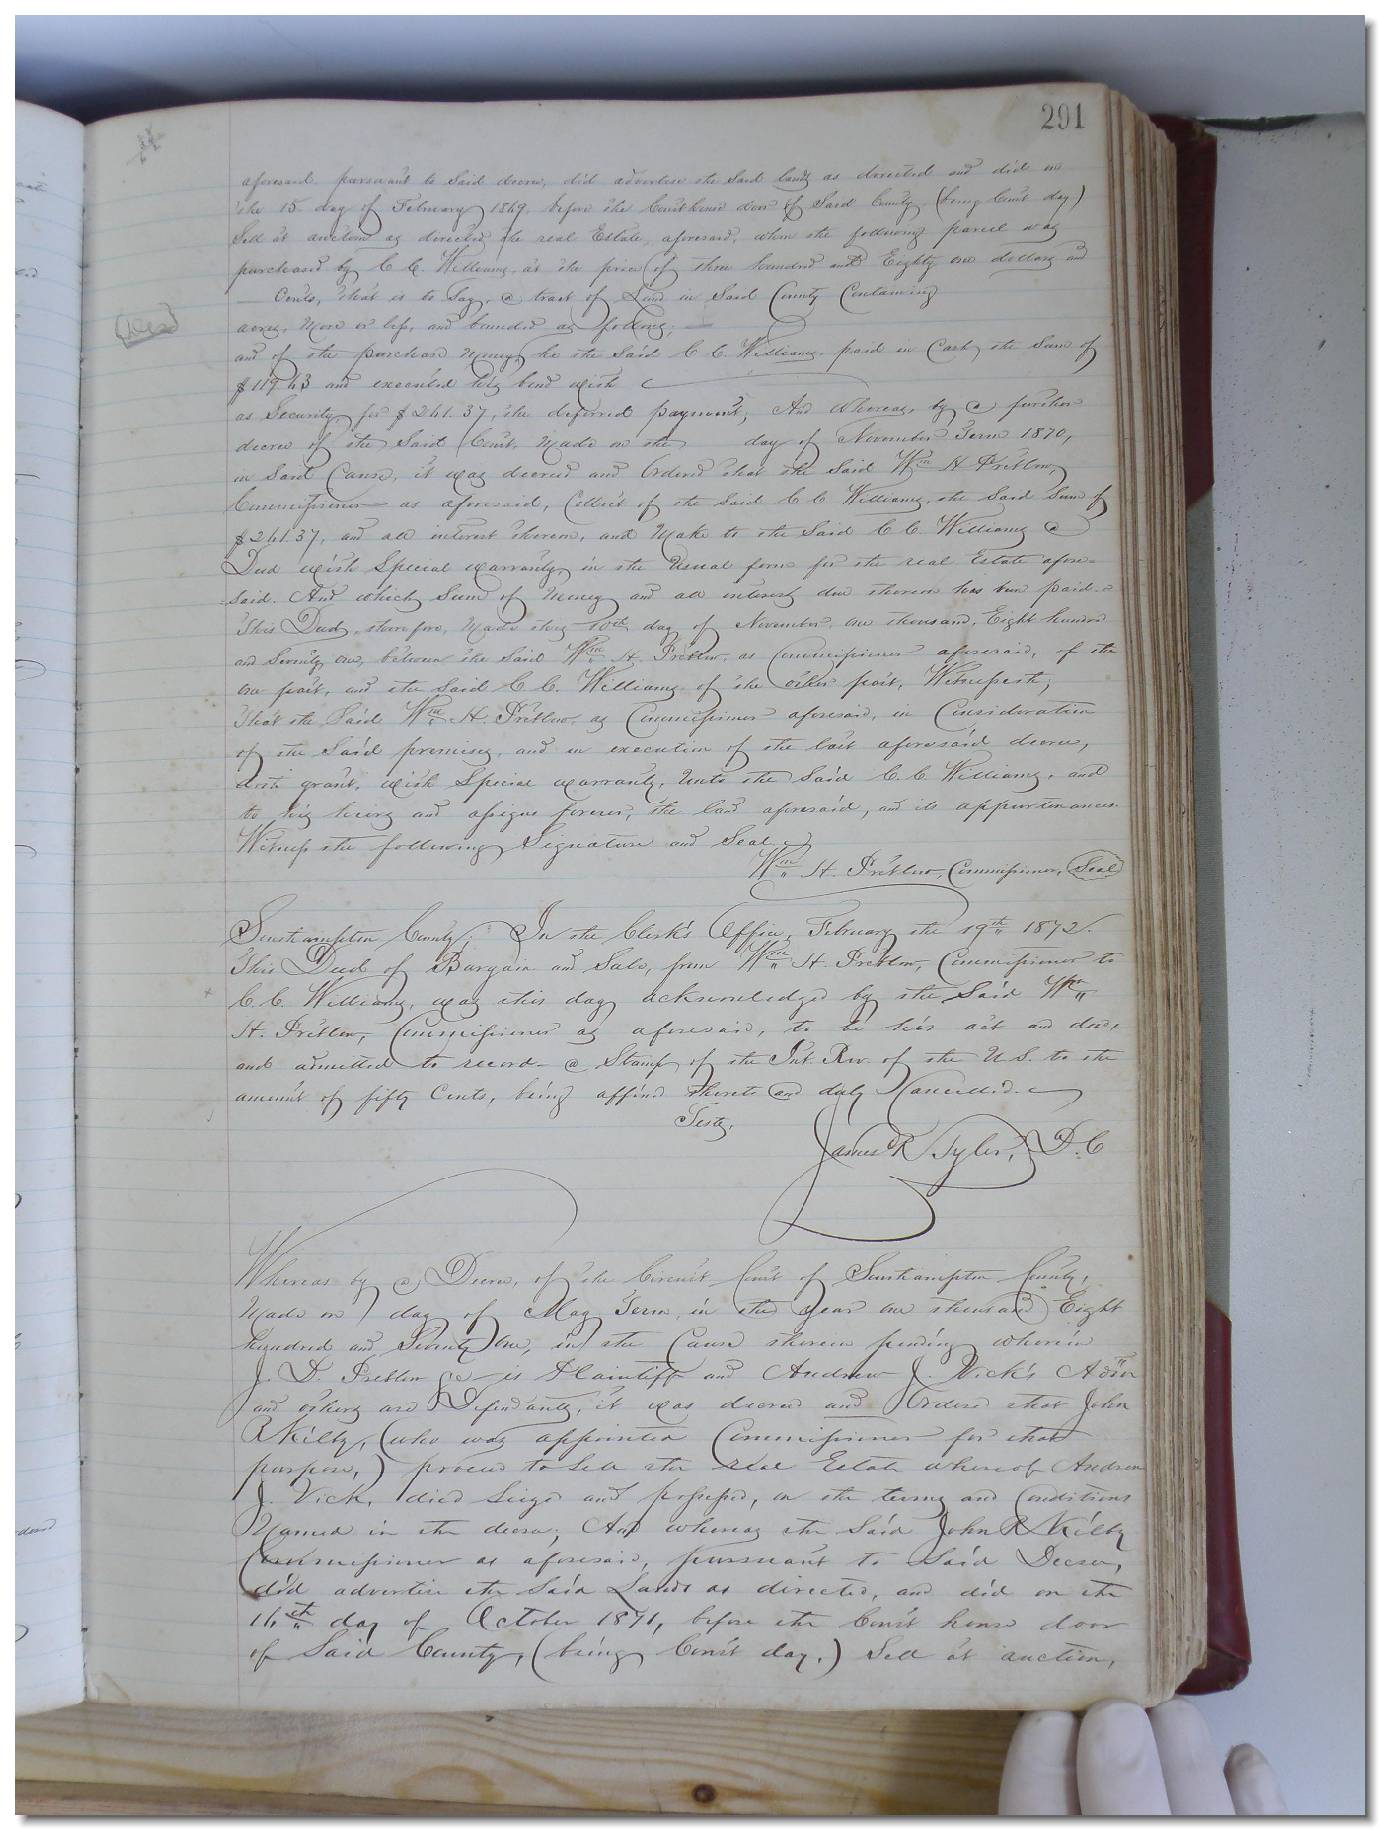 291
aforesaid pursuant to said decree, did advertise the said lands as directed and did on
the 15 day of February 1869, before the Courthouse door of said County (being Court day)
Sell at auction as directed the real Estate, aforesaid, when the following parcel was
purchased by C. C. Williams, at the price of three hundred and Eighty one dollars and
Cents, that is to say, a tract of Land in said County Containing
acres, More or less, and bounded as follows;
and of the purchase money he the said C. C. Williams paid in Cash the Sum of
$119.63 and executed his bond with
as Security for $261.37, the deferred payment; And whereas, by a further
decree of the Said Court, Made on the day of November Term 1870,
in said Cause, it was decreed and Ordered that the Said Wm H Pretlow,
Commissioner as aforesaid, Collect of the said C. C Williams, the Said Sum of
$261.37, and all interest thereon, and Make to the Said C. C. Williams a
Deed with Special warranty in the Usual form for the real Estate afore-
-said. And which Sum of Money and all interest due thereon has been paid.
This Deed, therefore, Made this 10th day of November, one thousand, Eight hundred
and Seventy one, between the Said Wm H. Pretlow, as Commissioner aforesaid, of the
one part, and the Said C. C. Williams of the other part, Witnesseth;
That the Said Wm H. Pretlow, as Commissioner aforesaid, in Consideration
of the Said premises, and in execution of the last aforesaid decree,
doth grant, with Special warranty, Unto the Said C. C. Williams, and
to his heirs and assigns forever, the land aforesaid, and its appurtenances.
Witness the following Signature and Seal.
Wm H. Pretlow, Commissioner, Seal
Southampton County; In the Clerk's Office, February the 19th 1872.
This Deed of Bargain and Sale, from Wm H. Pretlow, Commissioner to
C. C. Williams, was this day acknowledged by the Said Wm
H. Pretlow, Commissioner as aforesaid, to be his act and deed,
and admitted to record a Stamp of the Int. Rev. of the U.S. to the
amount of fifty Cents, being affixed thereto and duly Cancelled.
Teste,
James R Tyler, D. C
Whereas by a Decree, of the Circuit Court of Southampton County,
Made on day of May Term, in the year one thousand Eight
hundred and Seventy One, in the Cause therein pending wherein
J. D. Pretlow &c is Plaintiff and Andrew J. Vick's Admr
and others are Defendants, it was decreed and Ordered that John
R Kilby, (who was appointed Commissioner for that
purpose,) proceed to Sell the real Estate whereof Andrew
J. Vick, died Seized and possessed, on the terms and Conditions
Named in the decree; And whereas the Said John R Kilby
Commissioner as aforesaid, pursuant to Said Decree,
did advertise the Said Lands as directed, and did on the
16th day of October 1871, before the Court house door
of Said County, (being Court day,) Sell at auction,